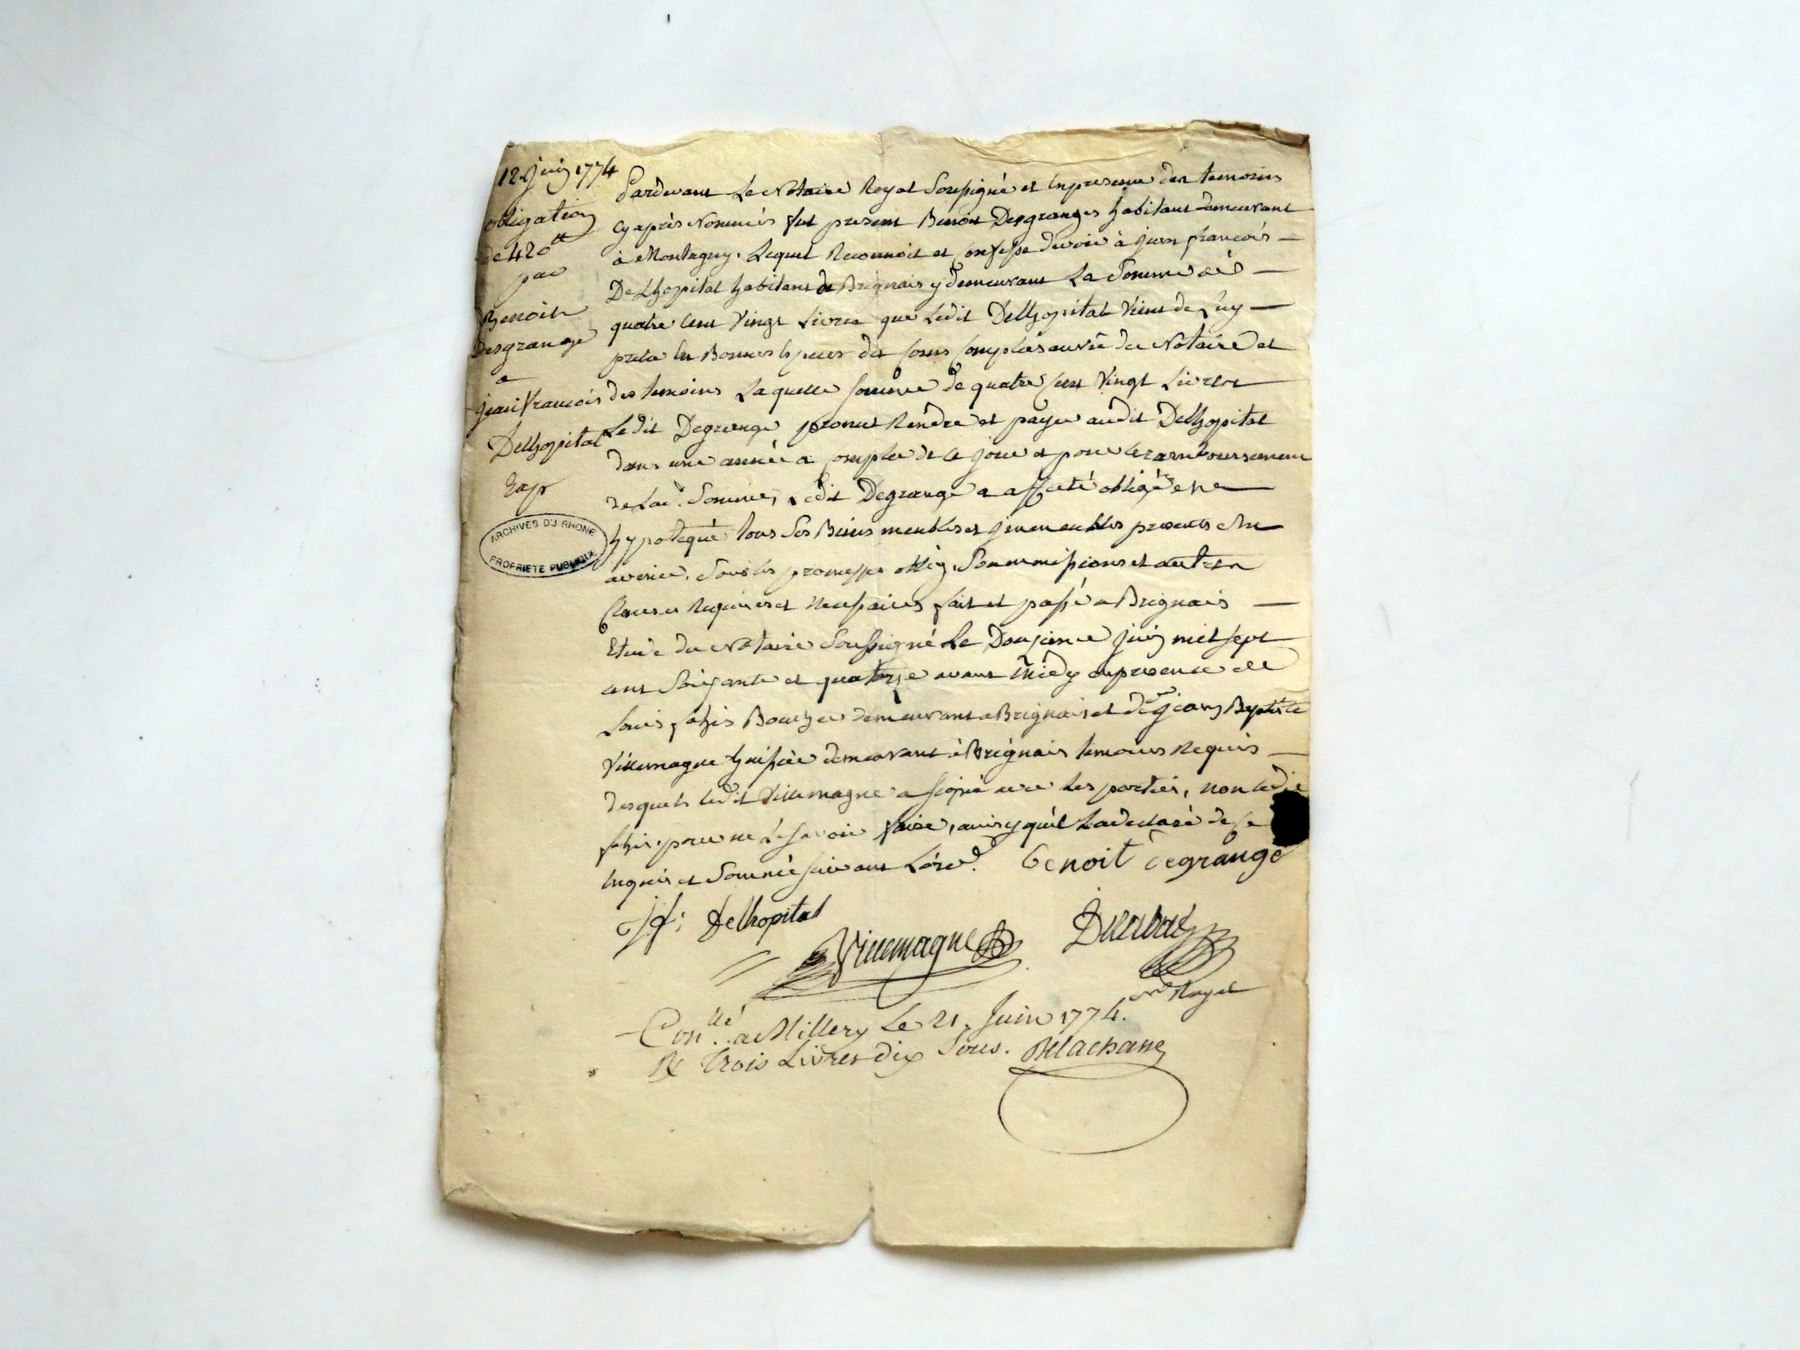 12 juin 1774
obligation
de 420tt
par
Benoit
Desgrange
a
jean francois
Delhopital
Exp
ARCHIVES DU RHONE
PROPRIETE PUBLIQUE
Pardevant Le Notaire Royal Soussigné et en presence des temoins
cy après Nommés fut present Benoit Desgranges habitant demeurant
à Montagny. Lequel Reconnoit et confesse devoir à jean francois
Delhopital habitant de Brignais y demeurant La Somme de
quatre cent Vingt Livres que Ledit Delhopital Vient de Luy
preter en Bonnes Especes du cours comptées au vû du Notaire et
des temoins Laquelle somme de quatre cent Vingt Livres
Ledit Degrange promet Rendre et payer audit Delhopital
dans une année a compter de ce jour et pour le remboursement
de Lad. Somme, Ledit Degrange a affecté obligé et
hypotequé tous Ses Biens meubles et jmmeubles presents et
avenir. Sous les promesses oblig. Soummissions et autres
Clauses Requises et Necessaires fait et passé a Brignais
Etude du Notaire Soussigné Le Douzieme juin mil sept
cent Soixante et quatorze avant midy en presence de
Louis fahis Boucher demeurant a Brignais et de jean Baptiste
Villemagne huissier demeurant à Brignais temoins Requis
desquels Ledit Villemagne a signé avec Les parties, non Ledit
fahis, pour ne Le Savoir faire, ainsy qu'il La declaré de ce
Enquis et Sommé suivant L'ord. benoit degrange
jf: Delhopital
Villemagne Durabat
nre Royal
Conllé a Millery Le 21. Juin 1774.
R Trois Livres dix Sous. Delachasse